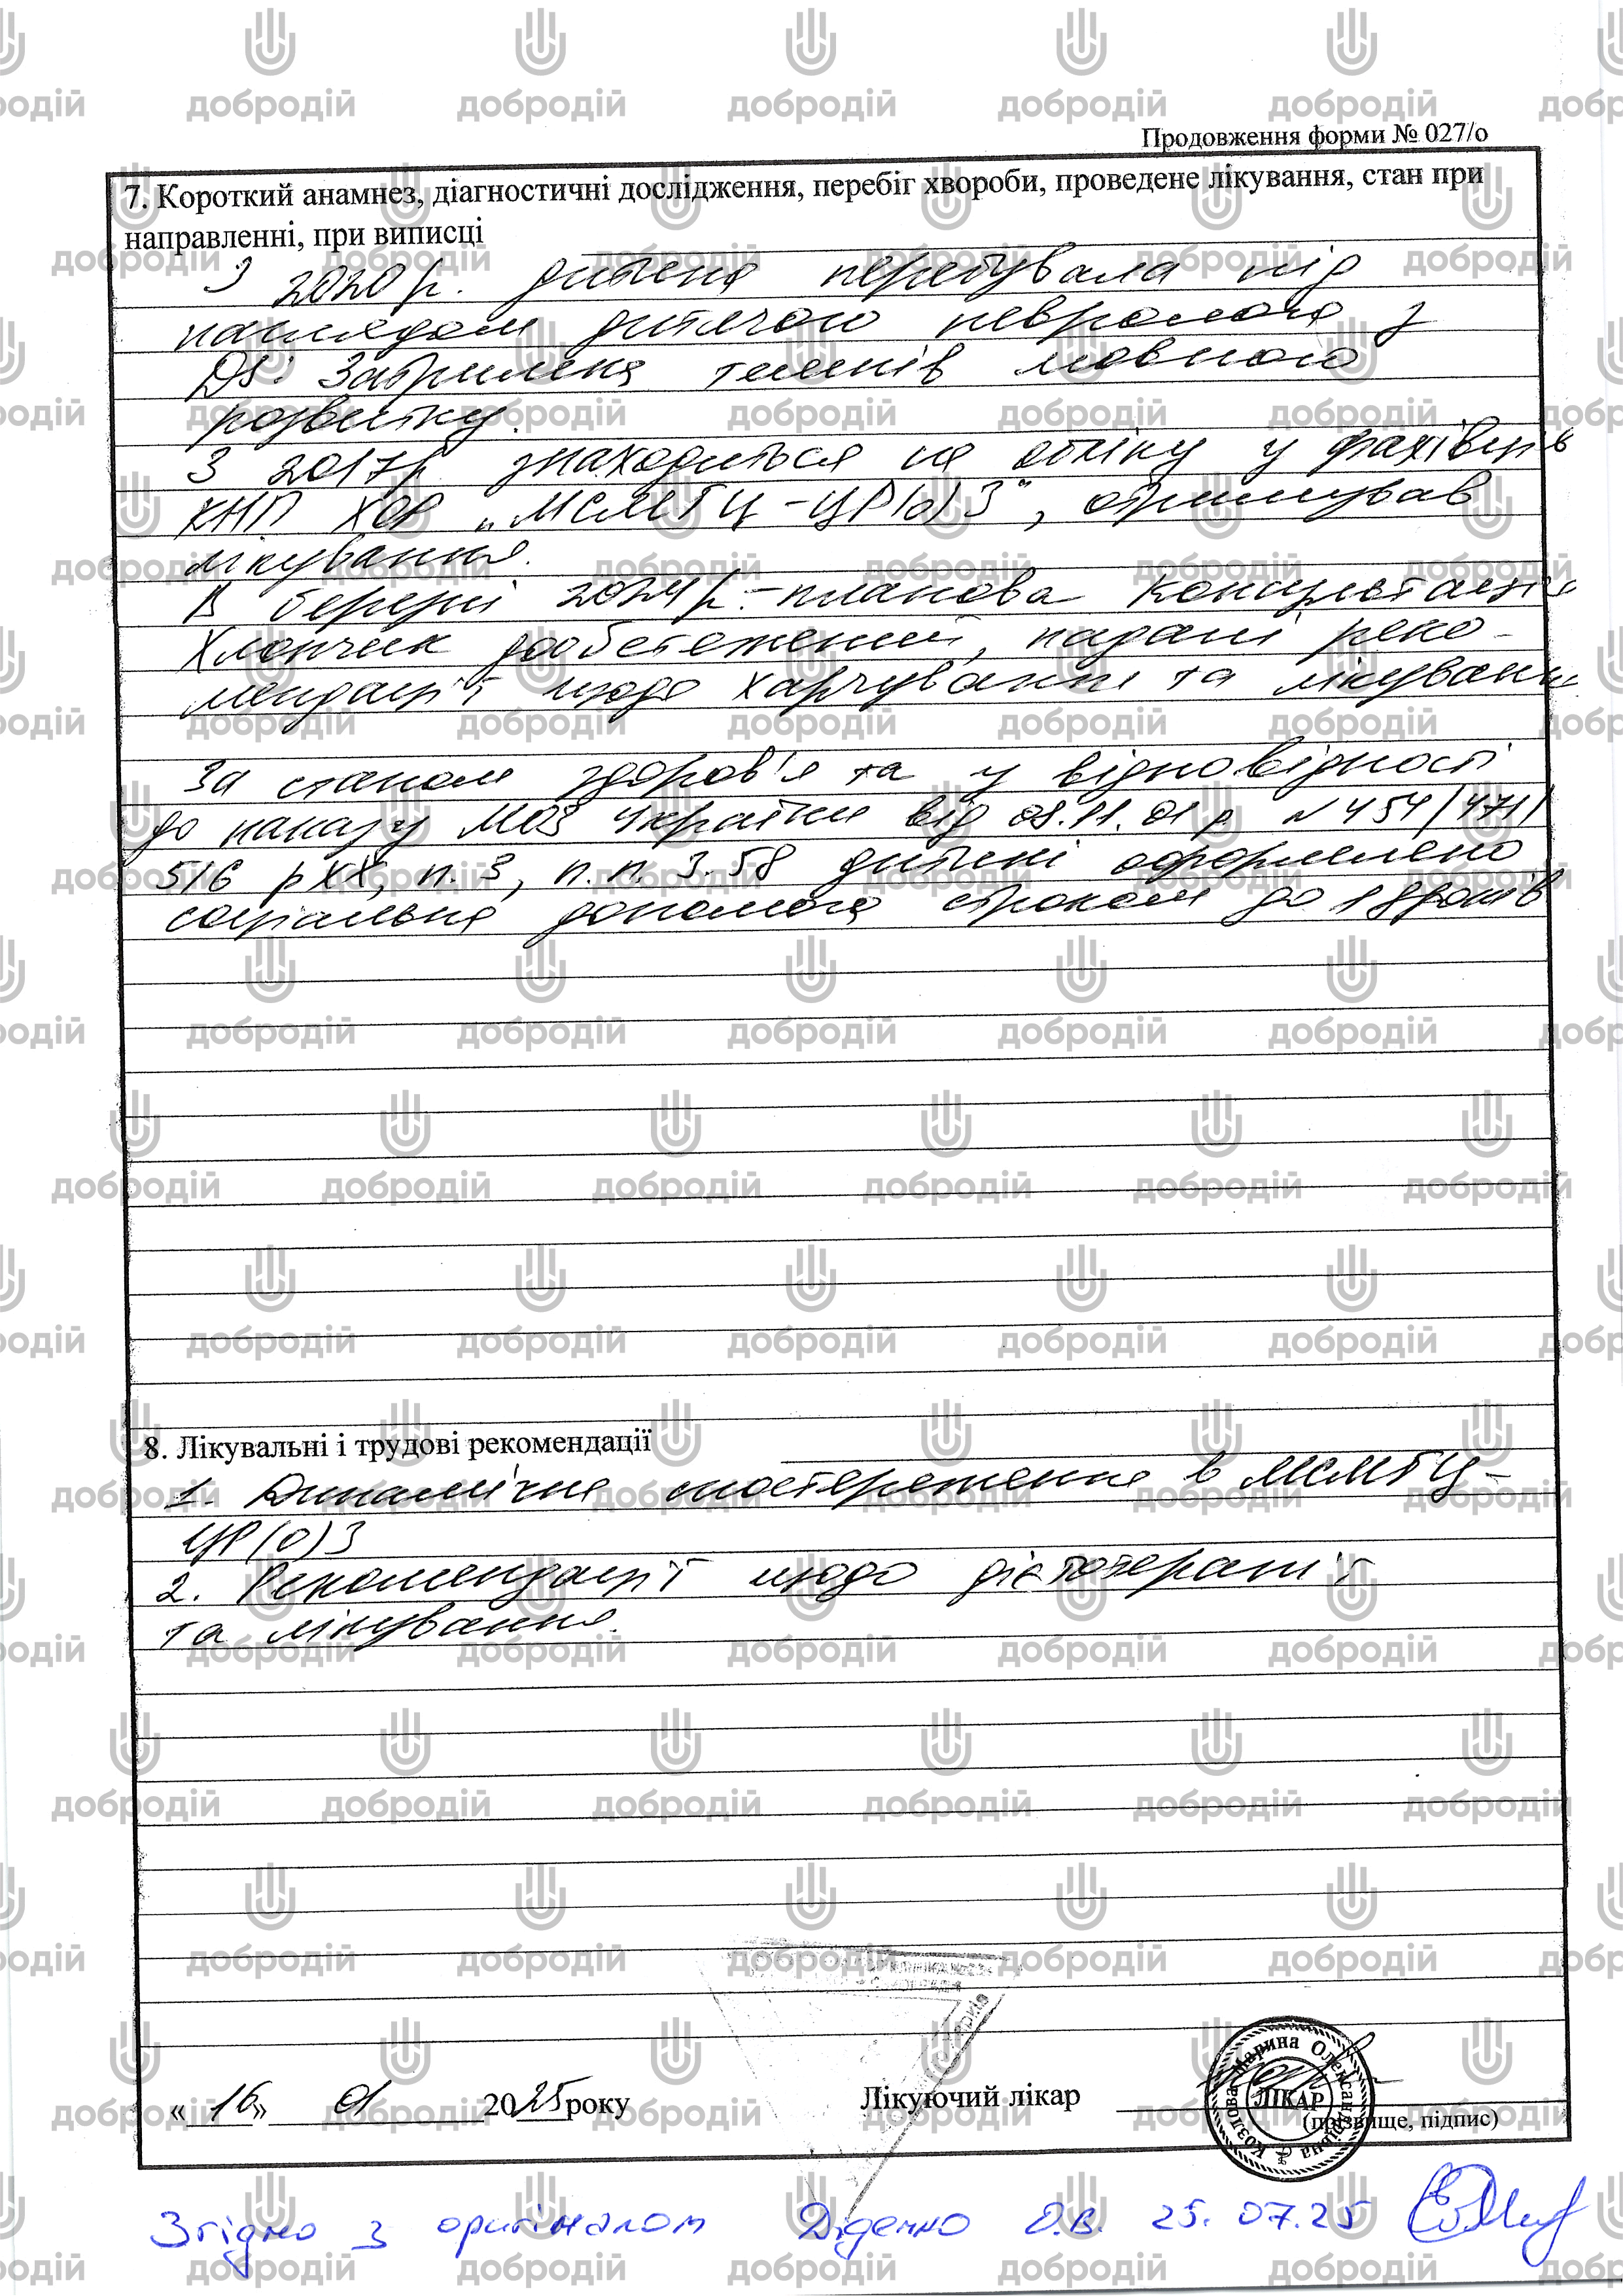 Продовження форми № 027/о
7. Короткий анамнез, діагностичні дослідження, перебіг хвороби, проведене лікування, стан при
направленні, при виписці
З 2020 р. дитина перебувала під
наглядом дитячого невролога з
DS: Затримка темпів мовного
розвитку.
З 2017р знаходиться на обліку у фахівців
КНП ХОР „МСМГЦ-ЦР(о)З", отримував
лікування.
В березні 2024 р. - планова консультація
Хлопчик дообстежений, надані реко-
мендації щодо харчування та лікування
За станом здоров'я та у відповідності
до наказу МОЗ України від 08.11.01 р N 454/471/
516 рХХ, п. 3, п.п. 3.58 дитині оформлено
соціальна допомога строком до 18 років
8. Лікувальні і трудові рекомендації
1. Динамічне спостереження в МСМГЦ-
ЦР(о)З
2. Рекомендації щодо дієтотерапії
та лікування.
« 16 » 01 2025 року Лікуючий лікар
Козлова Марина Олександрівна
ЛІКАР
(прізвище, підпис)
Згідно з оригіналом Діденко О.В. 25.07.25
добродій